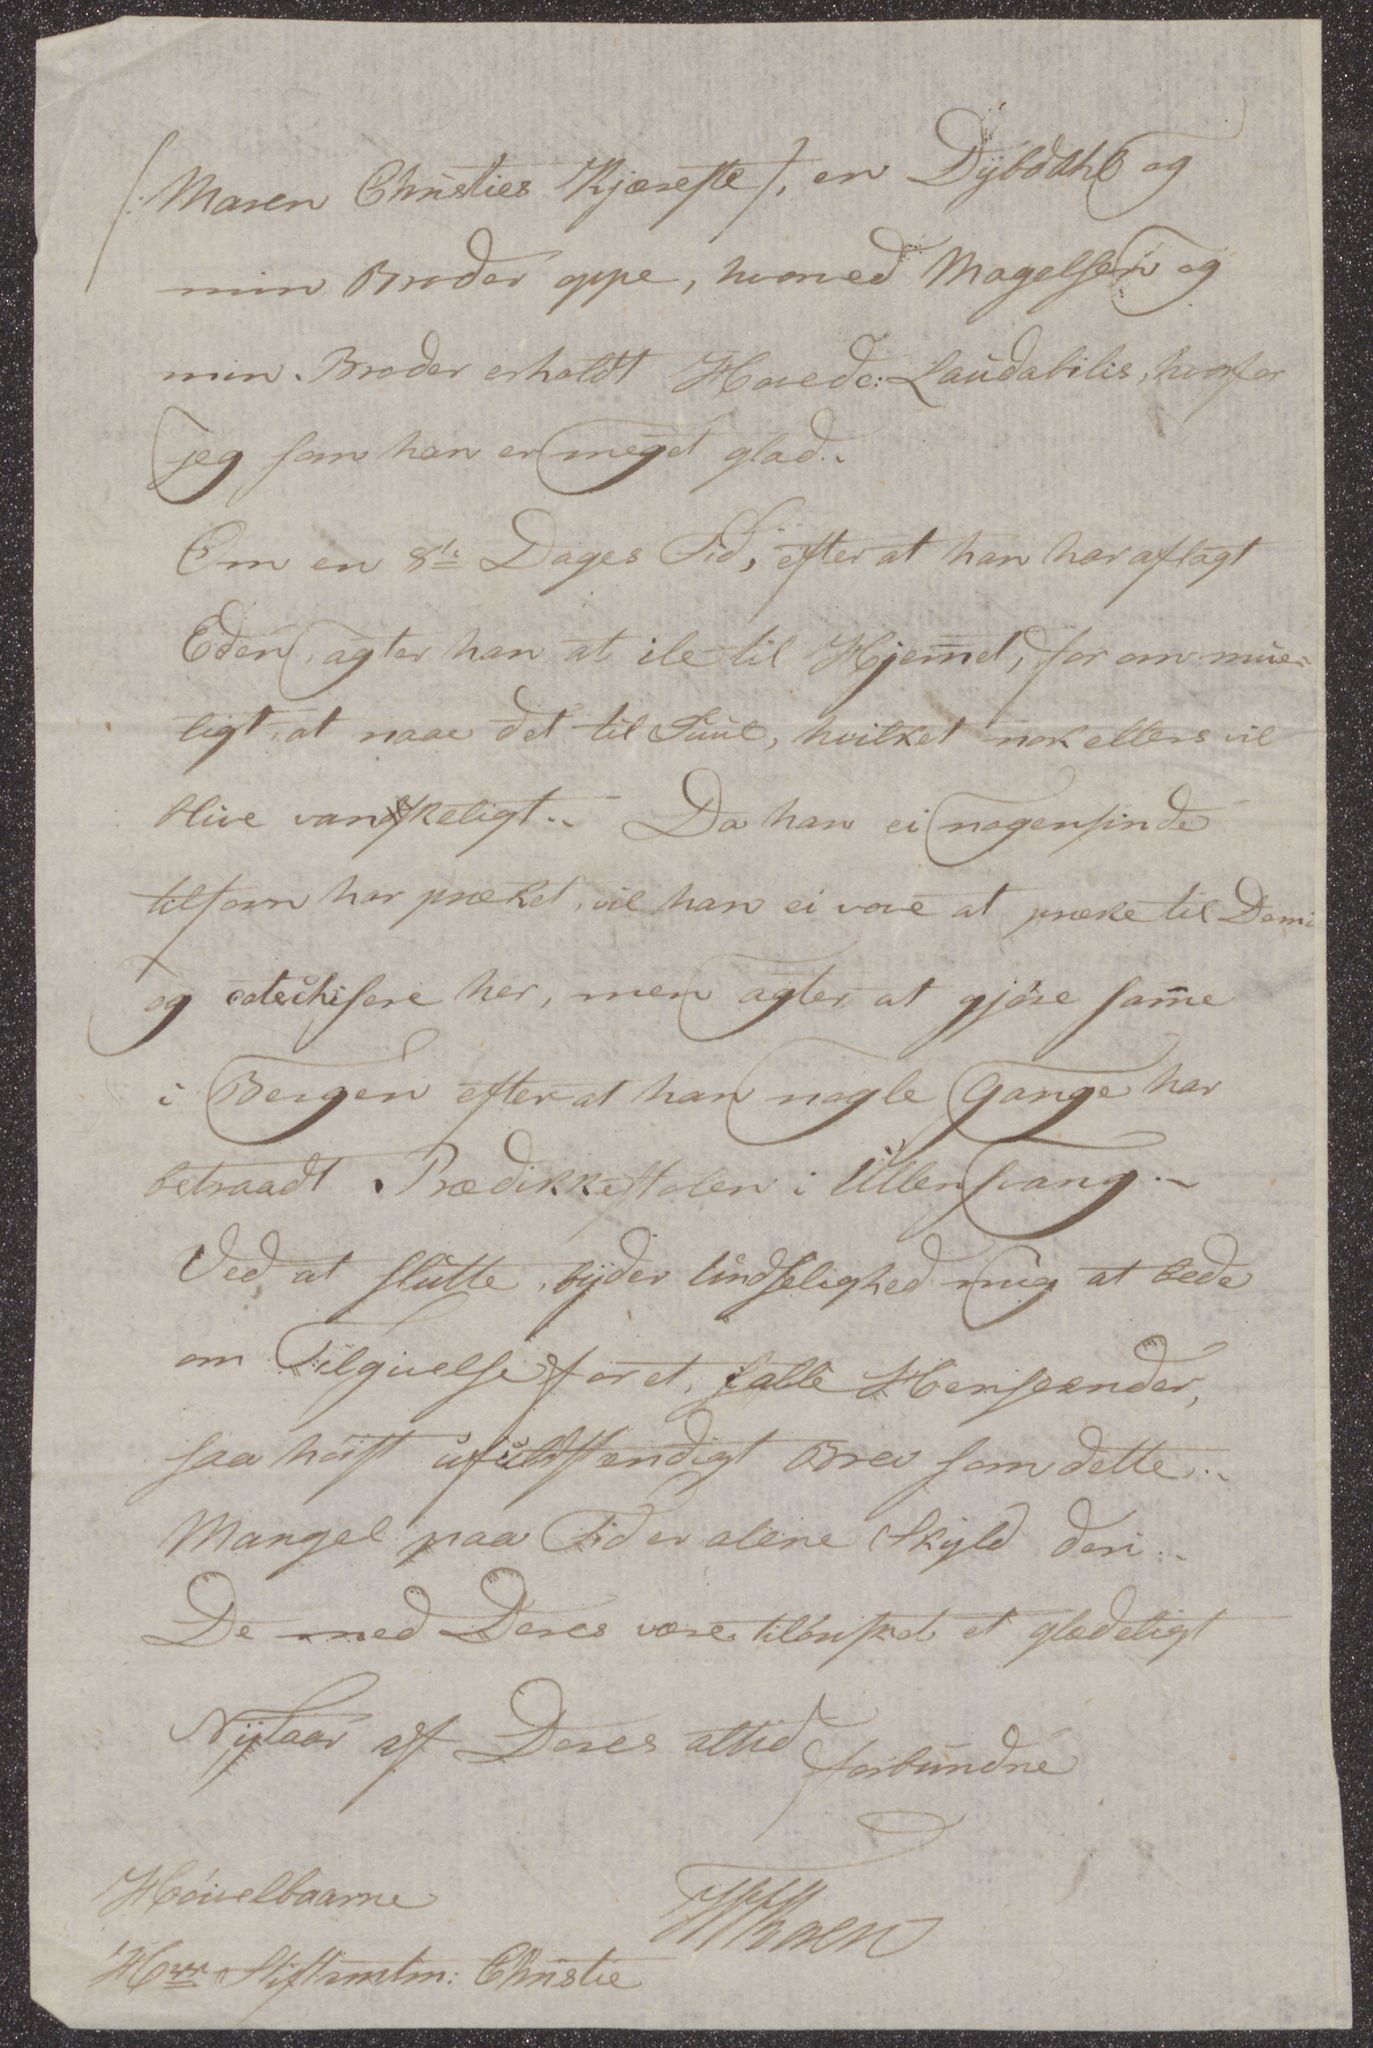 /: Maren Christies Kjæreste /, en Dybdahl og
min Broder oppe, hvoraf Magelsen og
min Broder erholdt Hoved: Laudabilis, hvorfor
jeg som han er meget glad..
Om en 8te Dages Tid, efter at han har aflagt
Eden, agter han at ile til Hjem̅et, for om mue-
ligt, at naae det til Juul, hvilket nok ellers vil
blive vanskeligt.. Da han ei nogensinde
tilforn har præket, vil han ei vove at præke til Demis
og catechisere her, men agter at gjøre sam̅e
i Bergen efter at han nogle Gange har
betraadt Prædikkestolen i Ullensvang..
Ved at slutte, byder Undselighed mig at bede
om Tilgivelse for et, i alle Henseender,
saa høist ufuldstændigt Brev som dette..
Mangel paa Tid er alene Skyld deri..
De med Deres være tilønsket et glædeligt
Nytaar af Deres altid forbundne
Høivelbaarne
Hrr Stiftamtm: Christie